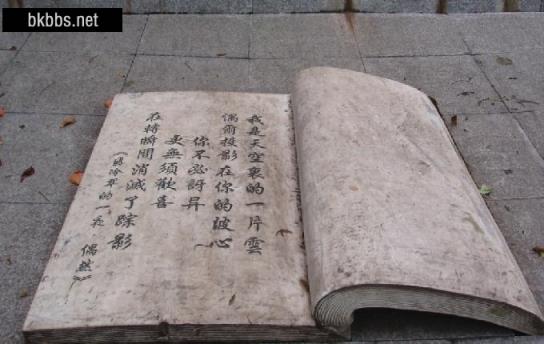 bkbbs.net
我是天空裏的一片雲
偶爾投影在你的波心
你不必訝异
更無須歡喜
在轉瞬間消滅了踪影
《翡冷翠的一夜 偶然》